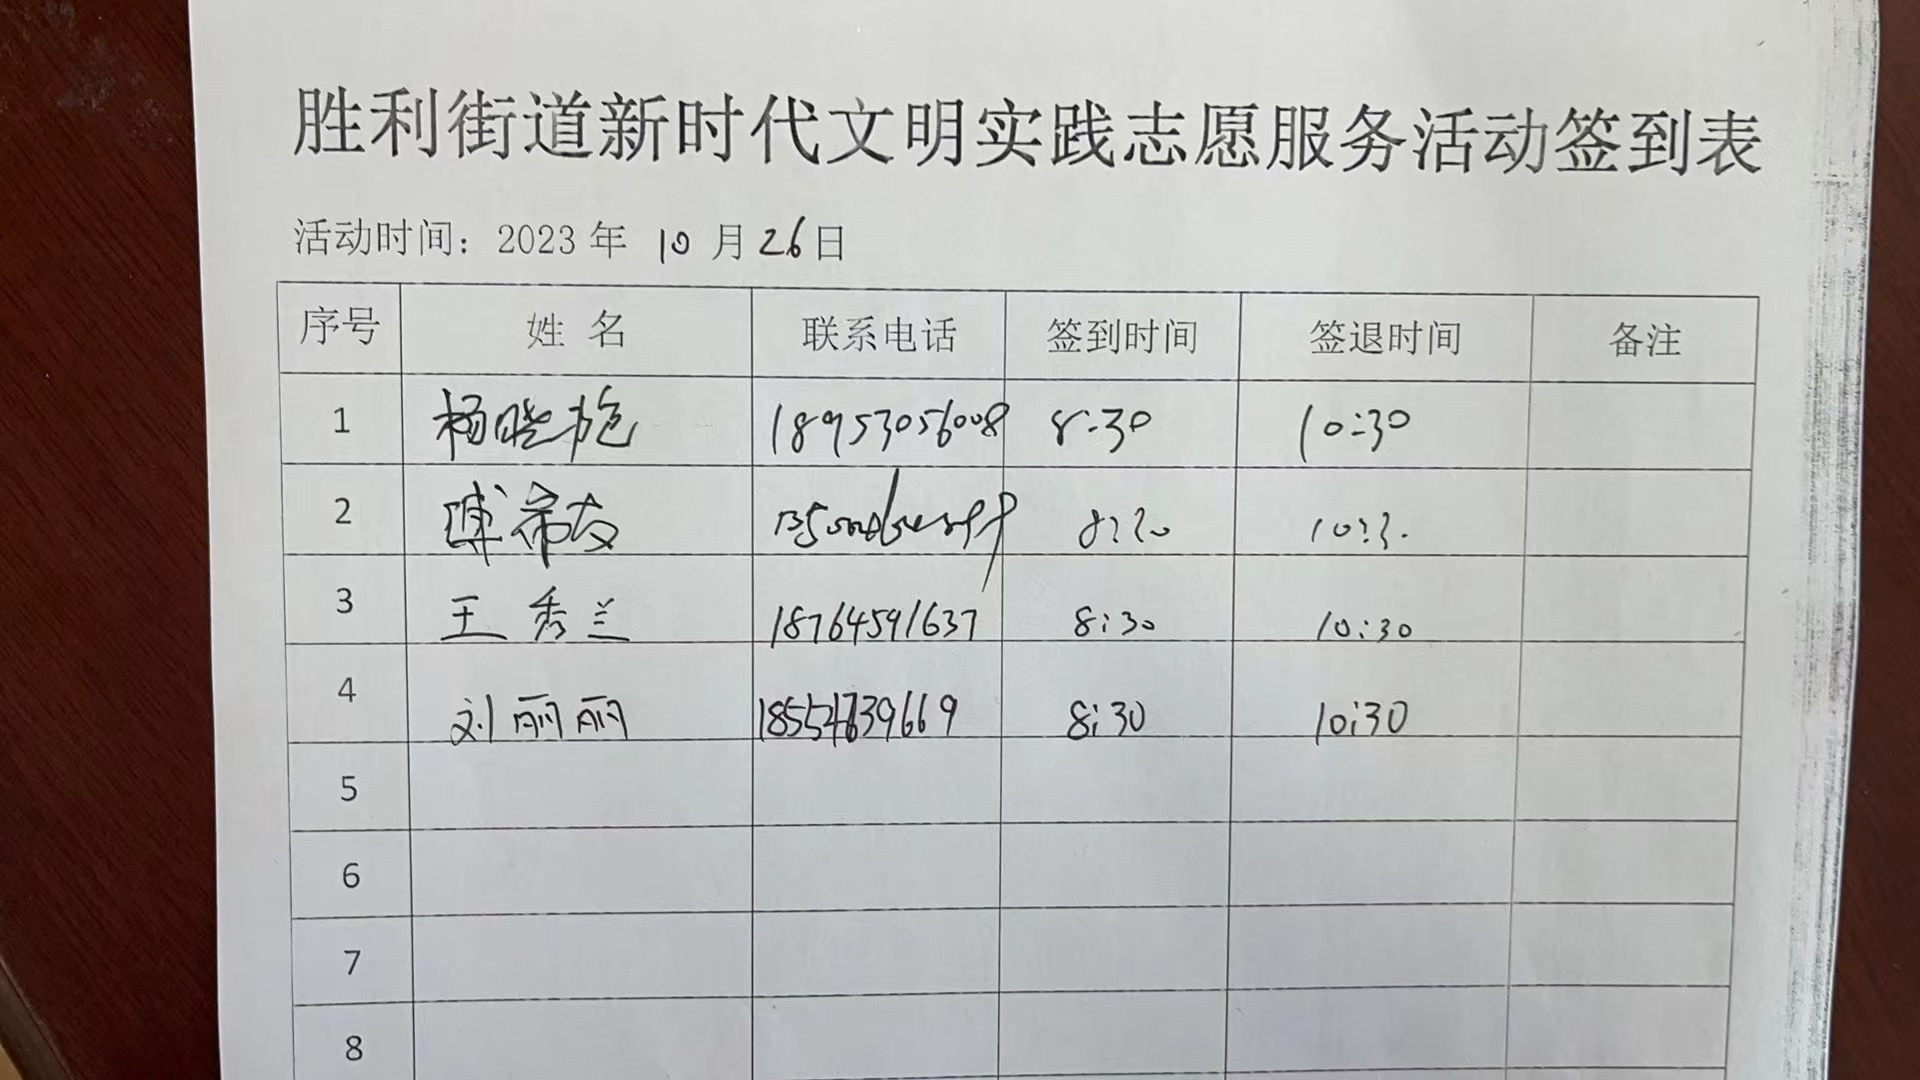 胜利街道新时代文明实践志愿服务活动签到表
活动时间：2023 年 10 月 26 日
序号 姓 名 联系电话 签到时间 签退时间 备注
1 杨晓艳 18953056008 8:30 10:30
2 8:30 10:30
3 王秀兰 18764591637 8:30 10:30
4 刘丽丽 8:30 10:30
5
6
7
8